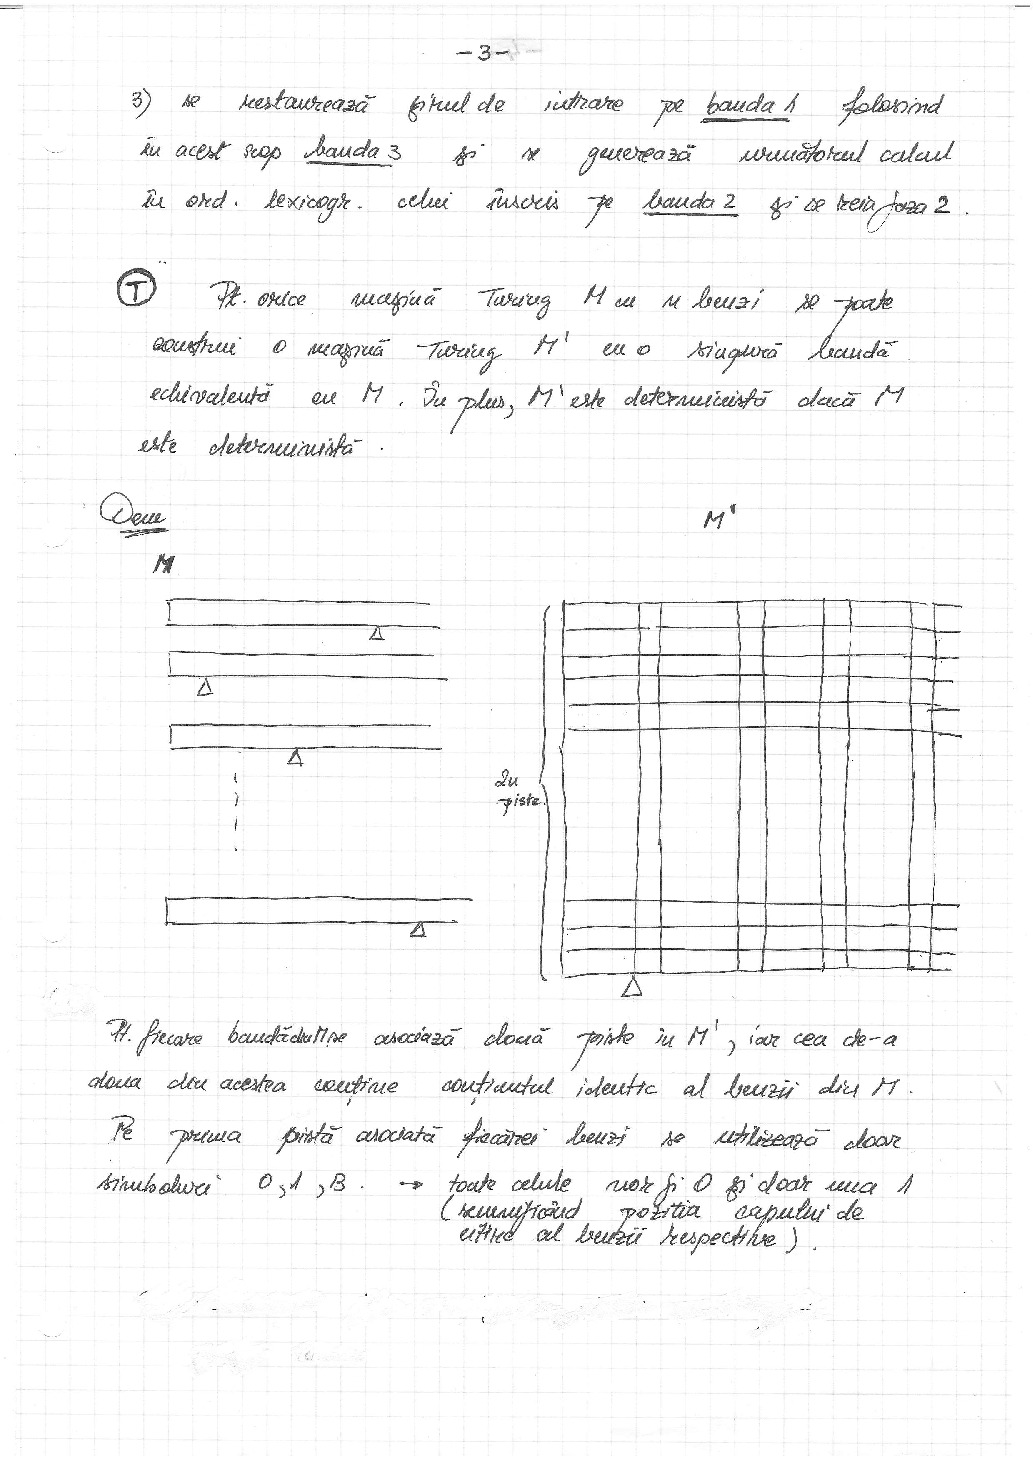 -3-
3) se restaurează șirul de intrare pe banda 1 folosind
în acest scop banda 3 și se generează următorul calcul
în ord. lexicogr. celui înscris pe banda 2 și se reia faza 2.
T Pt. orice mașină Turing M cu n benzi se poate
construi o mașină Turing M' cu o singură bandă
echivalentă cu M. În plus, M' este deterministă dacă M
este deterministă.
Dem
M'
M
2n
piste
Pt. fiecare bandă din M se asociază două piste în M', iar cea de-a
doua din acestea conține conținutul identic al benzii din M.
Pe prima pistă asociată fiecărei benzi se utilizează doar
simboluri 0, 1, B. → toate celule vor fi 0 și doar una 1
(semnificând poziția capului de
citire al benzii respective).